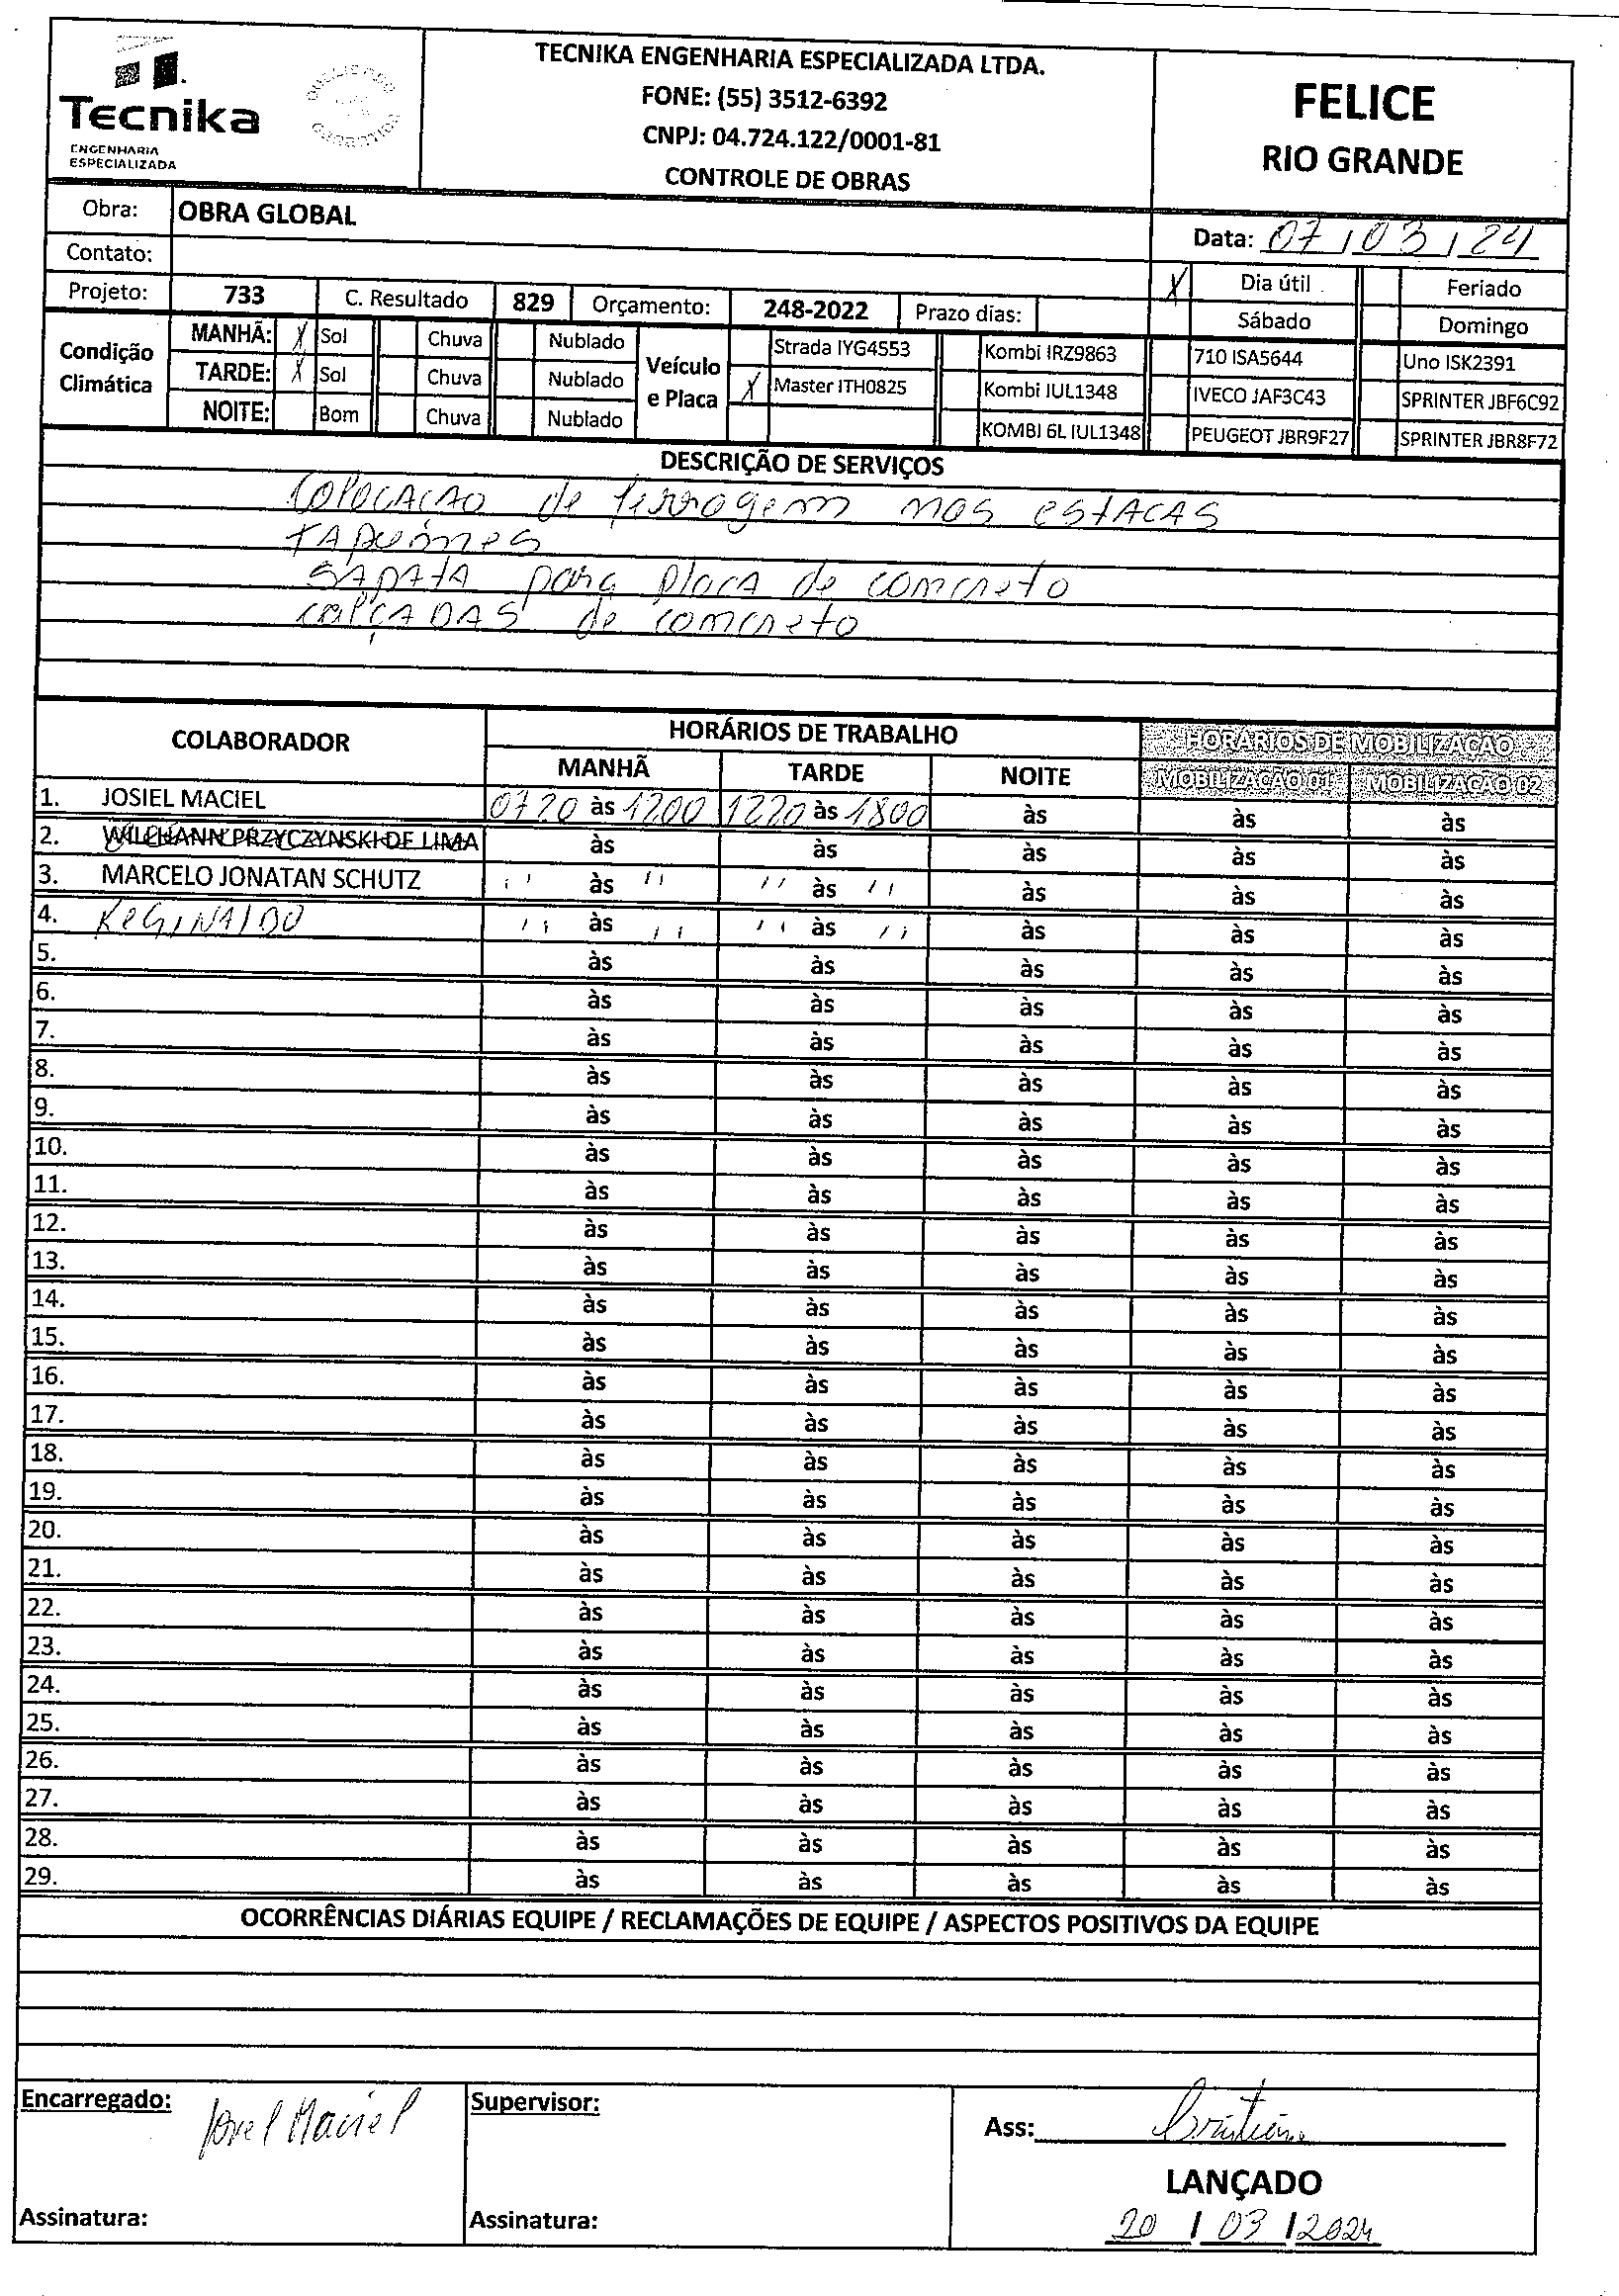 Tecnika
ENGENHARIA
ESPECIALIZADA
TECNIKA ENGENHARIA ESPECIALIZADA LTDA.
FONE: (55) 3512-6392
CNPJ: 04.724.122/0001-81
CONTROLE DE OBRAS
FELICE
RIO GRANDE
Obra: OBRA GLOBAL
Data: 07/03/24
Contato:
X Dia útil Feriado
Projeto: 733 C. Resultado 829 Orçamento: 248-2022 Prazo dias:
Sábado Domingo
Condição Climática
MANHÃ: X Sol Chuva Nublado
TARDE: X Sol Chuva Nublado
NOITE: Bom Chuva Nublado
Veículo e Placa
Strada IYG4553 Kombi IRZ9863 710 ISA5644 Uno ISK2391
X Master ITH0825 Kombi IUL1348 IVECO JAF3C43 SPRINTER JBF6C92
KOMBI 6L IUL1348 PEUGEOT JBR9F27 SPRINTER JBR8F72
DESCRIÇÃO DE SERVIÇOS
COLOCACAO de ferragem nas ESTACAS
TAPUmes
SAPATA para placa de concreto
calçADAS de concreto
COLABORADOR HORÁRIOS DE TRABALHO HORÁRIOS DE MOBILIZAÇÃO
MANHÃ TARDE NOITE MOBILIZAÇÃO 01 MOBILIZAÇÃO 02
1. JOSIEL MACIEL 0720 às 1200 1220 às 1800 às às às
2. WILCHANN PRZYCZYNSKI DE LIMA às às às às às
3. MARCELO JONATAN SCHUTZ '' às '' '' às '' às às às
4. REGINALDO '' às '' '' às '' às às às
5. às às às às às
6. às às às às às
7. às às às às às
8. às às às às às
9. às às às às às
10. às às às às às
11. às às às às às
12. às às às às às
13. às às às às às
14. às às às às às
15. às às às às às
16. às às às às às
17. às às às às às
18. às às às às às
19. às às às às às
20. às às às às às
21. às às às às às
22. às às às às às
23. às às às às às
24. às às às às às
25. às às às às às
26. às às às às às
27. às às às às às
28. às às às às às
29. às às às às às
OCORRÊNCIAS DIÁRIAS EQUIPE / RECLAMAÇÕES DE EQUIPE / ASPECTOS POSITIVOS DA EQUIPE
Encarregado: Maciel
Supervisor:
Ass:
LANÇADO
Assinatura:
Assinatura:
20/03/2024